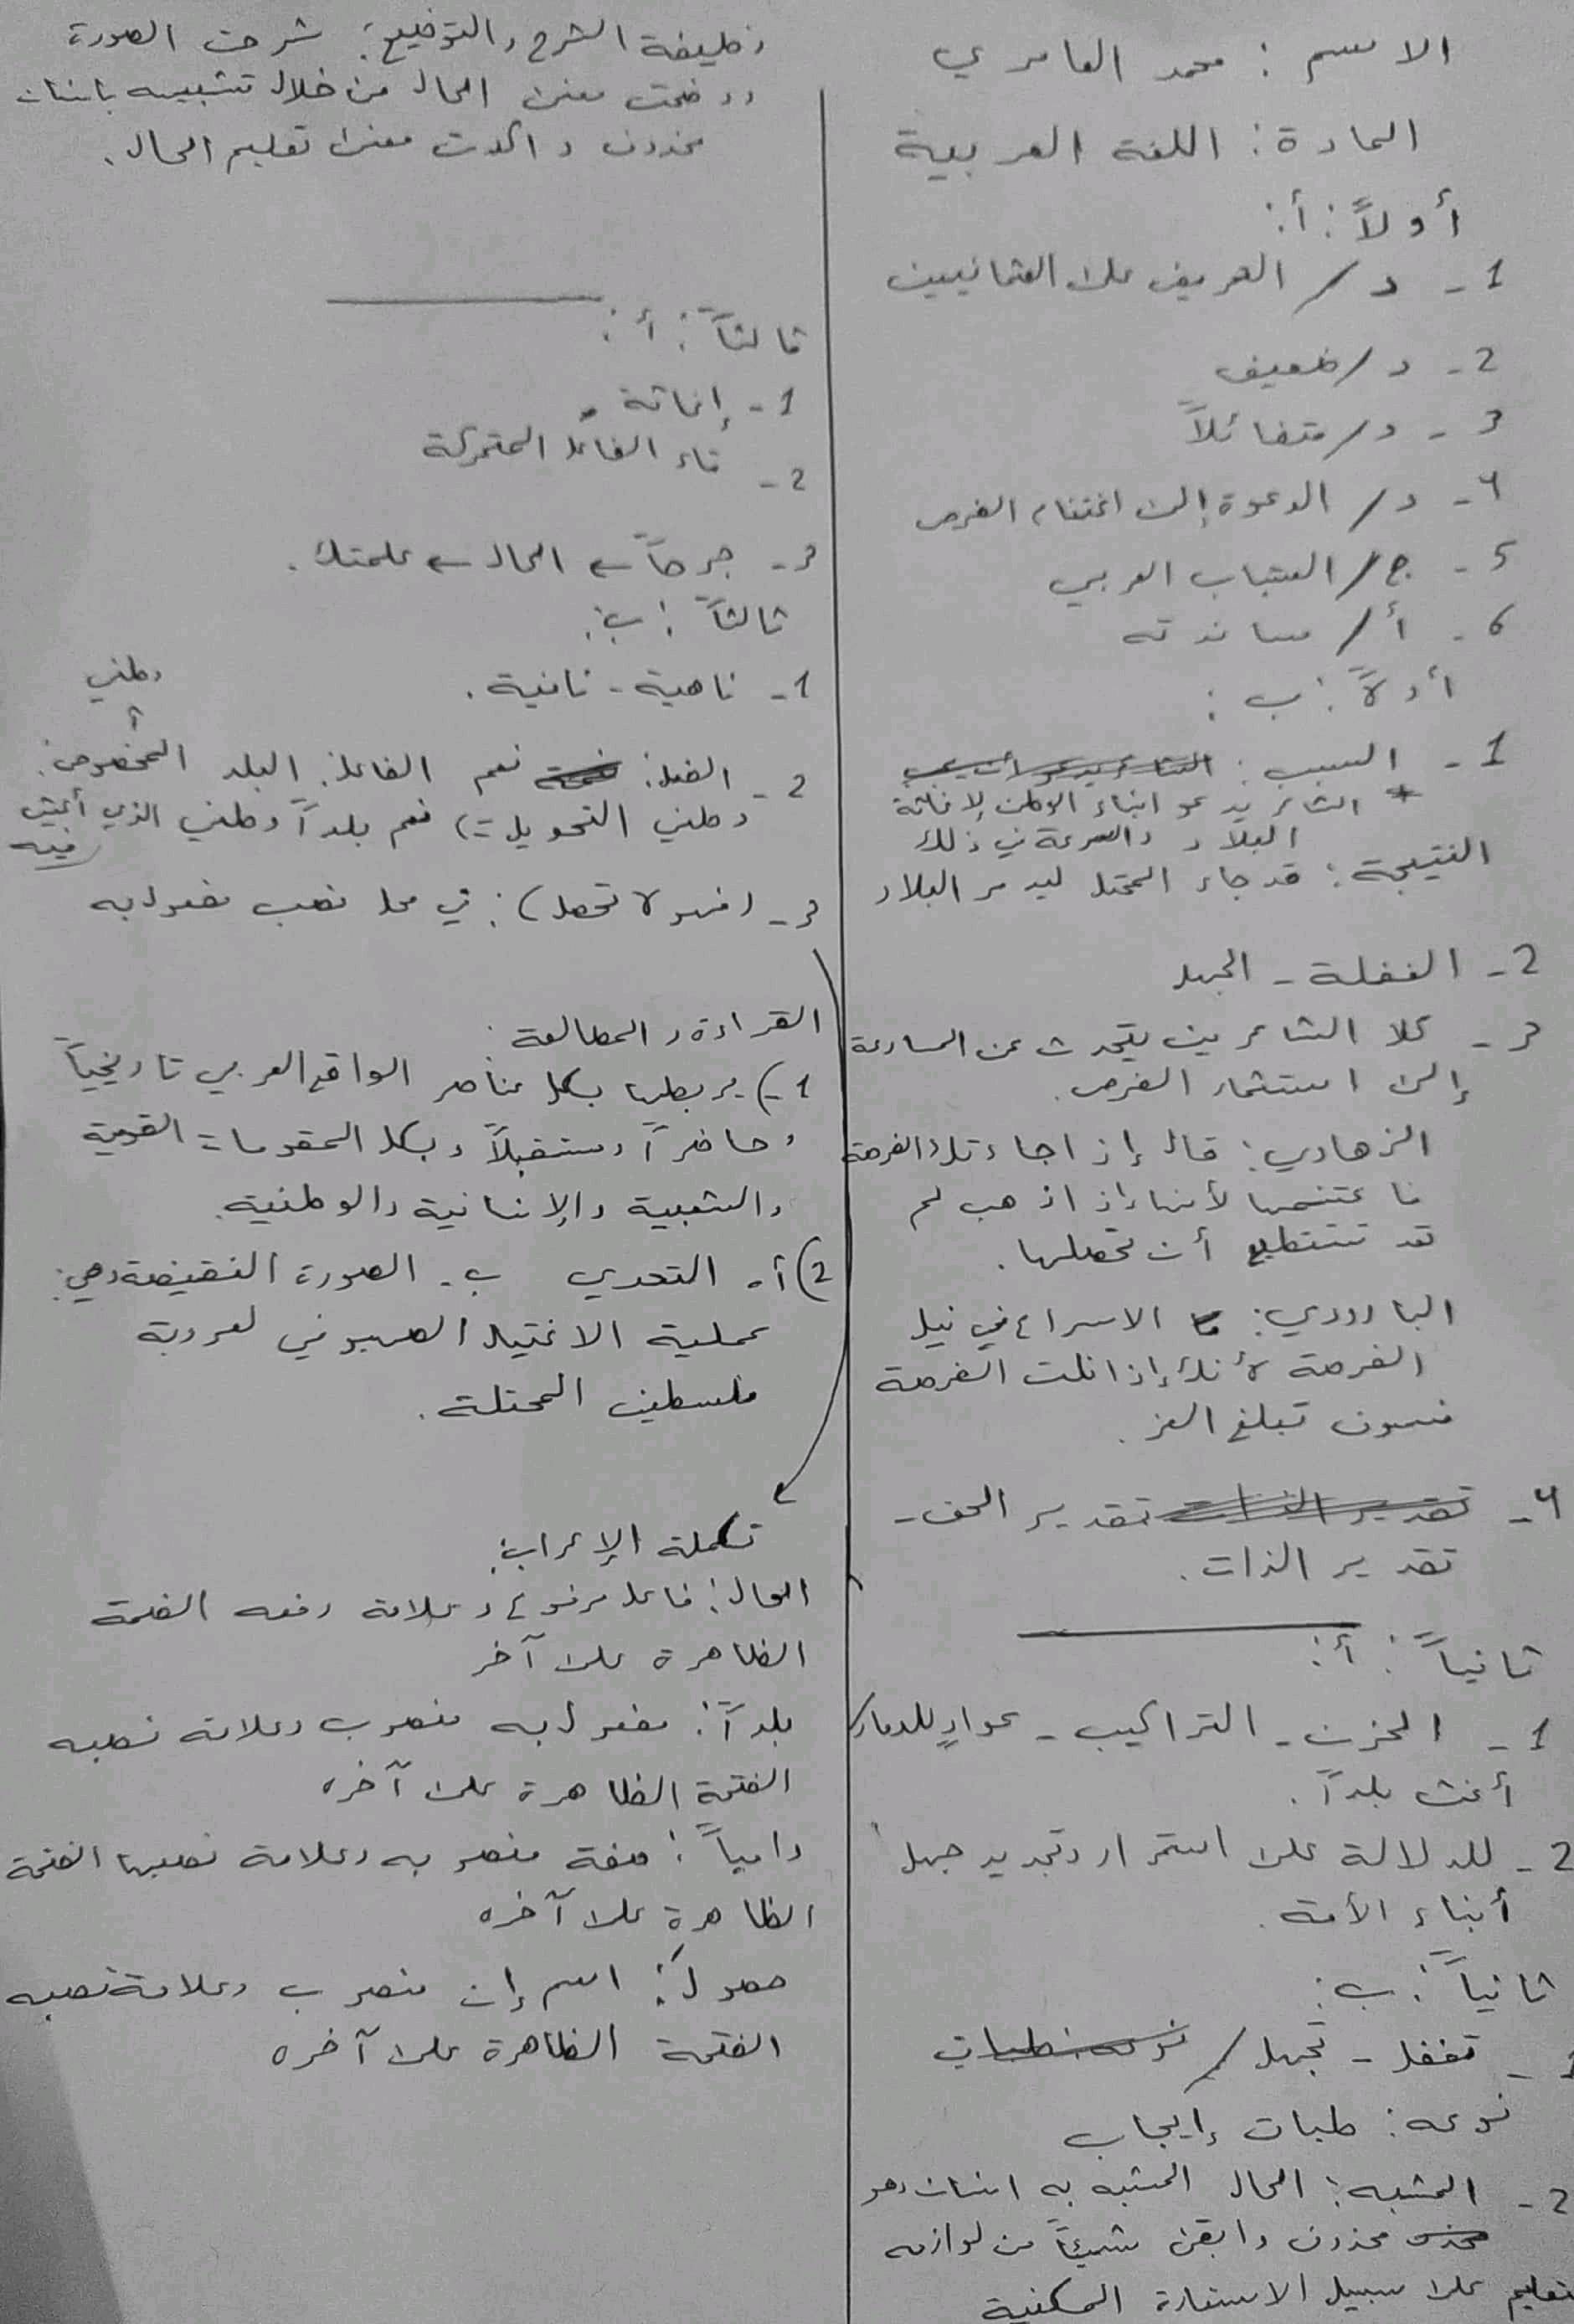 الاسم : محمد العامري
المادة : اللغة العربية
أولاً : أ :
1 - د / التحريض على العثمانيين
2 - د / ضعيف
3 - د / متفائلاً
4 - د / الدعوة إلى اغتنام الفرص
5 - ج / الشباب العربي
6 - أ / مساندته
أولاً : ب :
1 - السبب :
* الشاعر يدعو ابناء الوطن لإغاثة
البلاد والسرعة في ذلك
النتيجة : قد جاء المحتل ليدمر البلاد
2 - الغفلة - الجهل
3 - كلا الشاعرين يتحدث عن المسارعة
إلى استثمار الفرص .
الزهاوي : قال إذا جاءتك الفرصة
فاغتنمها لأنها إذا ذهب لم
تعد تستطيع أن تحصلها .
البارودي : الاسراع في نيل
الفرصة لأنك إذا نلت الفرصة
فسوف تبلغ العز .
4 - تقدير الذات تقدير الحق -
تقدير الذات .
ثانياً : أ :
1 - الحزن - التراكيب - عوادٍ للدمار /
أغث بلداً .
2 - للدلالة على استمرار وتجديد جهل
أبناء الأمة .
ثانياً : ب :
1 - تغفل - تجهل / نوعه : طباق
نوعه : طباق إيجاب
2 - المشبه : الحال المشبه به انسان وهو
محذوف وابقى شيئاً من لوازمه
تعليم على سبيل الاستعارة المكنية
وظيفة الشرح والتوضيح : شرحت الصورة
ووضحت معنى الحال من خلال تشبيهه بانسان
محذوف واكدت معنى تعليم الحال .
ثالثاً : أ :
1 - إغاثة .
2 - تاء الفاعل المتحركة
3 - جرحاً ← الحال ← علمتك .
ثالثاً : ب :
1 - ناهية - نافية .
وطني
2 - الفعل : نعم الفاعل : البلد المخصوص :
وطني التحويل => نعم بلداً وطني الذي أعيش
فيه
3 - (فهو لا تحصل) : في محل نصب مفعول به
القراءة والمطالعة :
1 -) يربطها بكل عناصر الواقع العربي تاريخياً
وحاضراً ومستقبلاً وبكل المقومات القومية
والشعبية والإنسانية والوطنية .
2) أ - التحدي ب - الصورة النقيضة وهي :
عملية الاغتيال الصهيوني لعروبة
فلسطين المحتلة .
تكملة الإعراب :
الحال : فاعل مرفوع وعلامة رفعه الضمة
الظاهرة على آخر
بلداً : مفعول به منصوب وعلامة نصبه
الفتحة الظاهرة على آخره
دامياً : صفة منصوبه وعلامة نصبها الفتحة
الظاهرة على آخره
حصولَ : اسم إن منصوب وعلامة نصبه
الفتحة الظاهرة على آخره